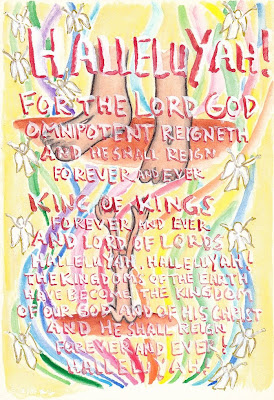 HALLELUYAH!
FOR THE LORD GOD
OMNIPOTENT REIGNETH
AND HE SHALL REIGN
FOREVER AND EVER
KING OF KINGS
FOREVER AND EVER
AND LORD OF LORDS
HALLELUYAH, HALLELUYAH!
THE KINGDOMS OF THE EARTH
HAVE BECOME THE KINGDOM
OF OUR GOD AND OF HIS CHRIST
AND HE SHALL REIGN
FOREVER AND EVER!
HALLELUYAH!